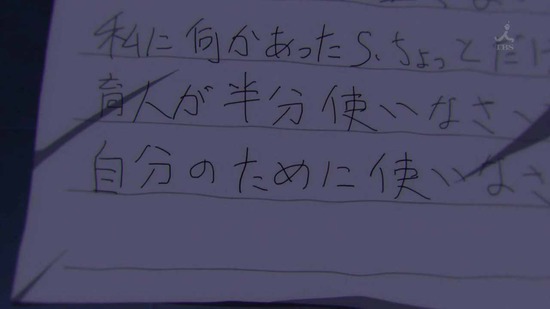 TBS
私に何かあったら、ちょっとだけ
育人が半分使いなさい
自分のために使いなさ